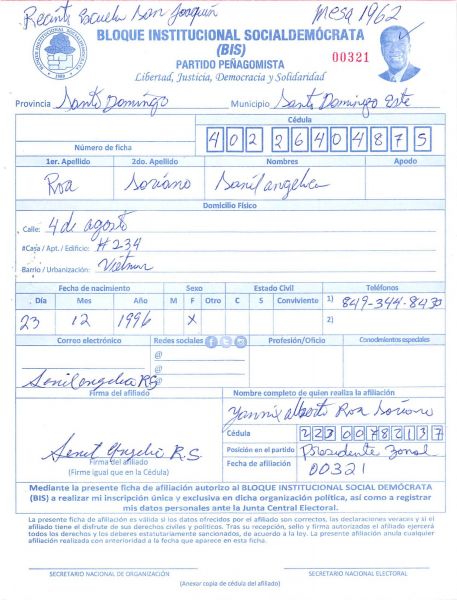 Recinto Escuela San Joaquín Mesa 1962
BLOQUE INSTITUCIONAL SOCIALDEMÓCRATA
(BIS)
00321
PARTIDO PEÑAGOMISTA
Libertad, Justicia, Democracia y Solidaridad
Provincia Santo Domingo Municipio Santo Domingo Este
Cédula
Número de ficha 402 26404875
1er. Apellido 2do. Apellido Nombres Apodo
Roa Soriano Sanilangelica
Domicilio Físico
Calle: 4 de agosto
#Casa / Apt. / Edificio: #234
Barrio / Urbanización: Vietnam
Fecha de nacimiento Sexo Estado Civil Teléfonos
Día Mes Año M F Otro C S Conviviente 1) 849-344-8430
23 12 1996 X 2)
Correo electrónico Redes sociales Profesión/Oficio Conodcimientos especiales
@
@
Sanilangelica RS @
Firma del afiliado Nombre completo de quien realiza la afiliación
Yannis Alberto Roa Soriano
Cédula 223 0078213 7
Posición en el partido Presidente Zonal
Firma del afiliado
(Firme igual que en la Cédula)
Fecha de afiliación 00321
Mediante la presente ficha de afiliación autorizo al BLOQUE INSTITUCIONAL SOCIAL DEMÓCRATA
(BIS) a realizar mi inscripción única y exclusiva en dicha organización política, así como a registrar
mis datos personales ante la Junta Central Electoral.
La presente ficha de afiliación es válida si los datos ofrecidos por el afiliado son correctos, las declaraciones veraces y si el
afiliado tiene el disfrute de sus derechos civiles y políticos. Tras su recepción, sello y firma autorizada el afiliado ejercerá
todos los derechos y los deberes estatutariamente sancionados, de acuerdo a la ley. La presente afiliación anula cualquier
afiliación realizada con anterioridad a la fecha que aparece en esta ficha.
SECRETARIO NACIONAL DE ORGANIZACIÓN SECRETARIO NACIONAL ELECTORAL
(Anexar copia de cédula del afiliado)